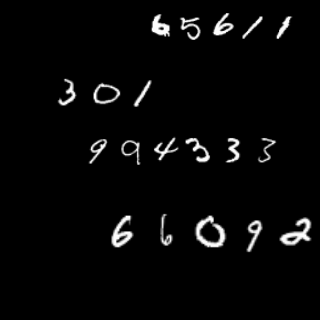 65611
301
994333
66092